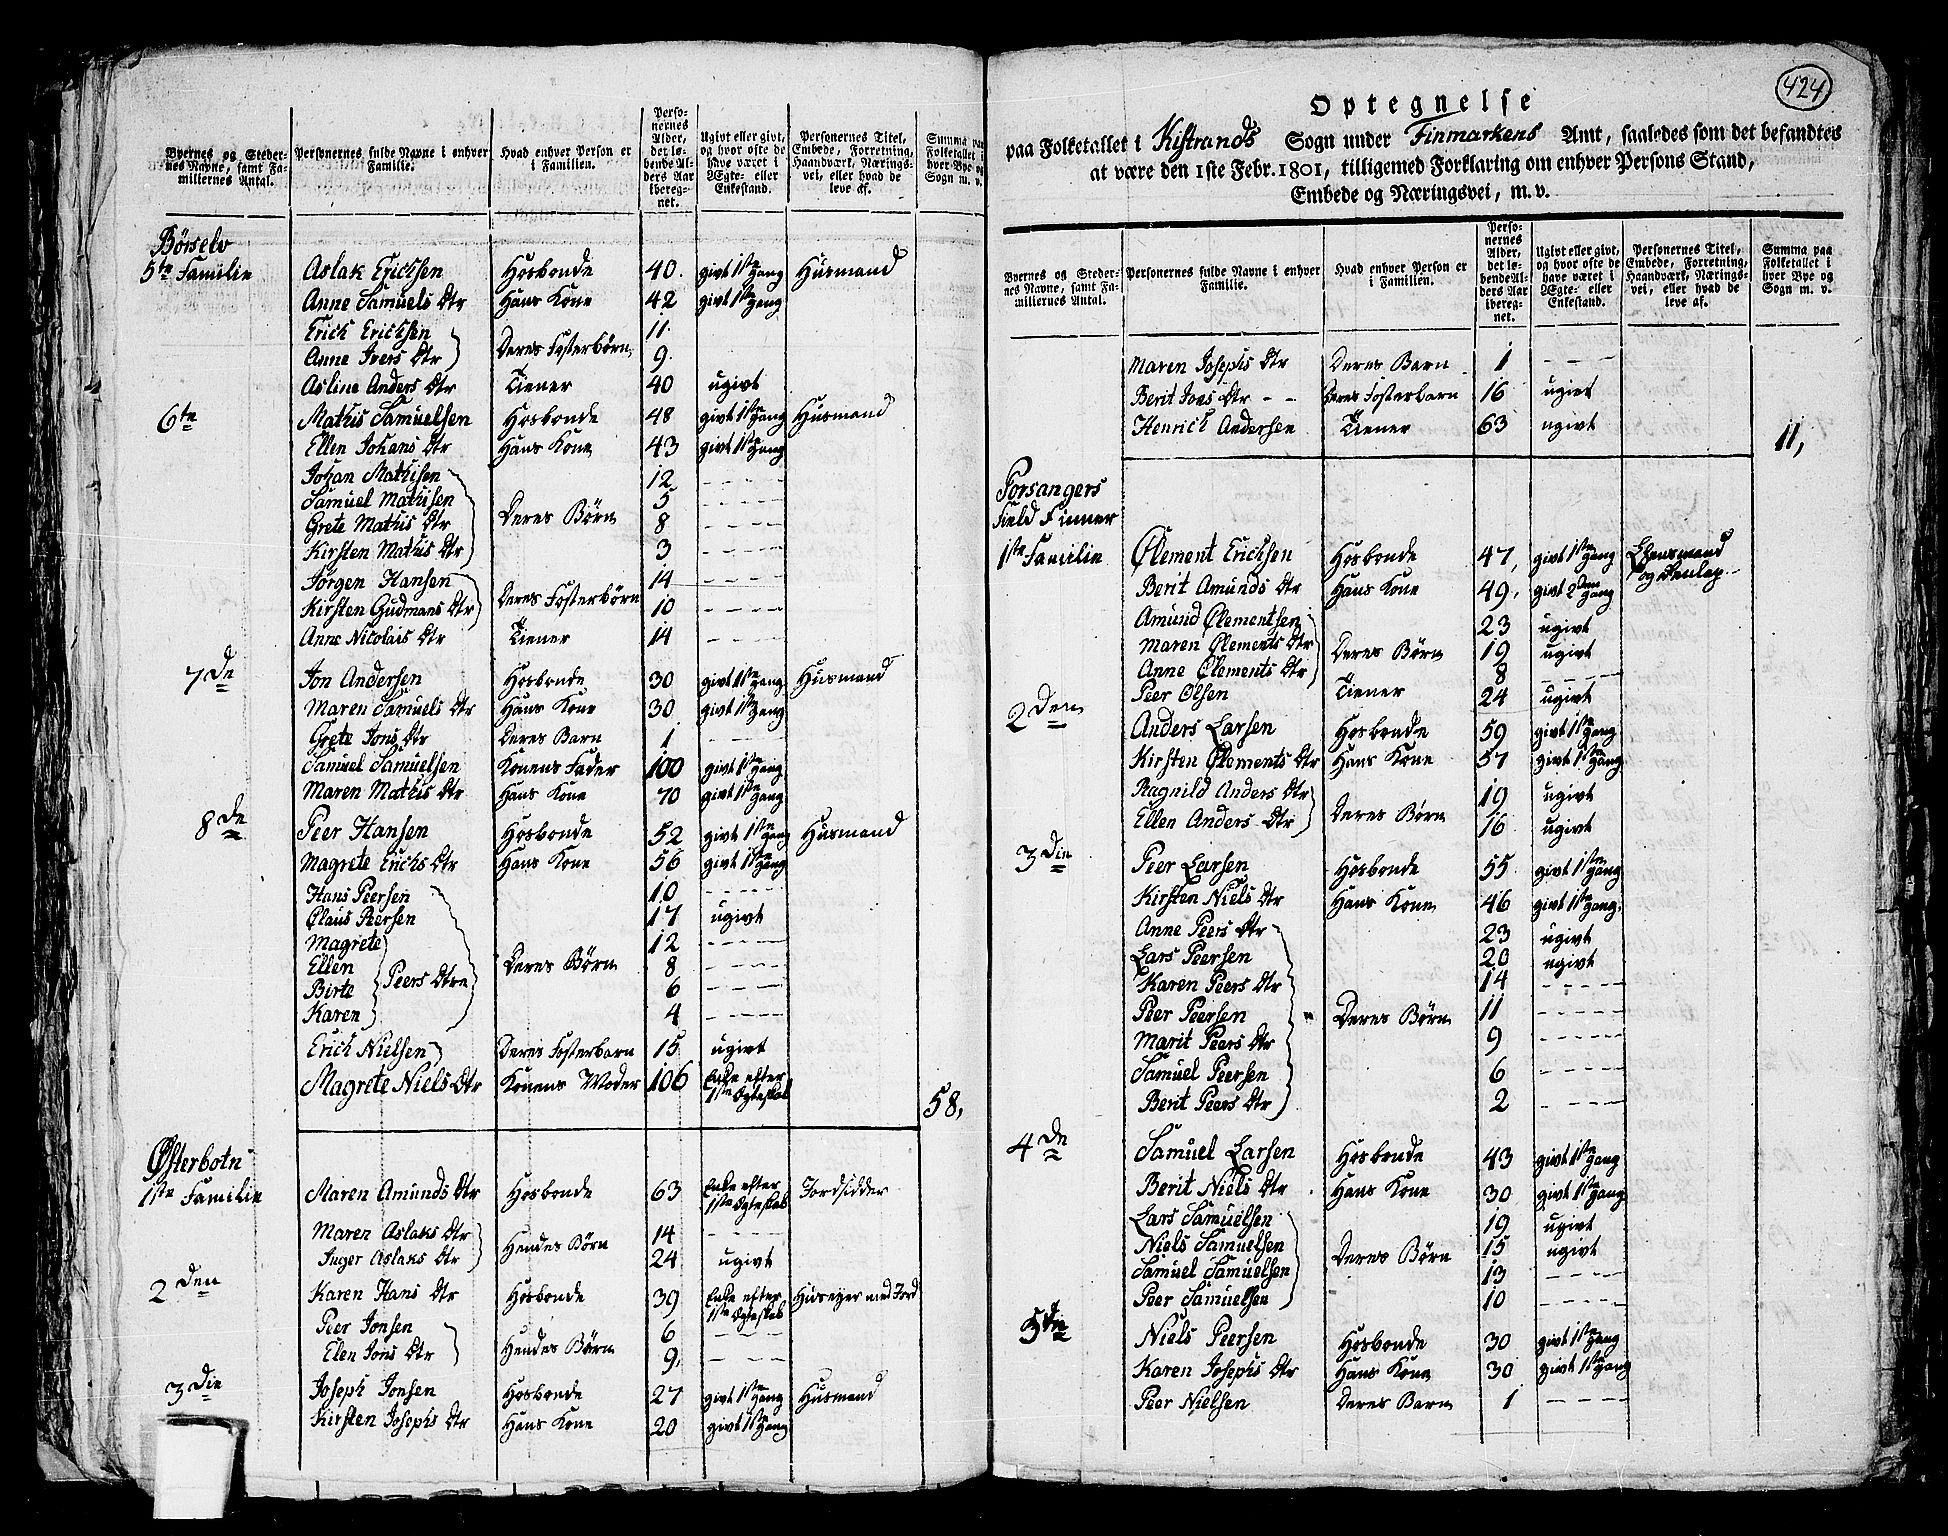 Byernes og Stedernes Navne, samt Familiernes Antal.
Personernes fulde Navne i enhver Familie.
Hvad enhver Person er i Familien.
Personernes Alder, det løbende Alders Aar iberegnet.
Ugivt eller givt, og hvor ofte de have været i Ægte- eller Enkestand.
Personernes Titel, Embede, Forretning, Haandværk, Næringsvei, eller hvad de leve af.
Summa paa Folketallet i hver Bye og Sogn m. v.
Børselv
5te Familie Aslak Ericksen Hosbonde 40. givt 1ste gang Husmand
Anne Samuels Dtr Hans Kone 42 givt 1ste gang
Erick Ericksen Deres Fosterbörn 11.
Anne Ivers Dtr 9.
Asline Anders Dtr Tiener 40 ugivt
6te Mathis Samuelsen Hosbonde 48 givt 1ste gang Husmand
Ellen Johans Dtr Hans Kone 43 givt 1ste gang
Johan Mathisen 12 - - - -
Samuel Mathisen Deres Börn 5 - - - -
Grete Mathis Dtr 8 - - - -
Kirsten Mathis Dtr 3 - - - -
Jörgen Hansen Deres Fosterbörn 14 - - - -
Kirsten Gudmans Dtr 10 - - - -
Anne Nicolais Dtr Tiener 14 - - - -
7de Jon Andersen Hosbonde 30 givt 1ste gang Husmand
Maren Samuels Dtr Hans Kone 30 givt 1ste gang
Grete Jons Dtr Deres Barn 1 - - - -
Samuel Samuelsen Konens Fader 100 givt 1ste gang
Maren Mathis Dtr Hans Kone 70 givt 1ste gang
8de Peer Hansen Hosbonde 52 givt 1ste gang Husmand
Magrete Erichs Dtr Hans Kone 56 givt 1ste gang
Hans Peersen 10 - - - -
Olaus Peersen 17 ugivt
Magrete 12 - - - -
Ellen Peers Dtre Deres Börn 8 - - - -
Birte 6 - - - -
Karen 4 - - - -
Erich Nielsen Deres Fosterbarn 15 ugivt
Magrete Niels Dtr Konens Moder 106 Enke efter 1ste Ægteskab
58,
Østerbotn
1ste Familie Maren Amunds Dtr Hosbonde 63 Enke efter 1ste Ægteskab Jordsidder
Maren Aslaks Dtr Hendes Börn 14 - - - -
Inger Aslaks Dtr 24 ugivt
2den Karen Hans Dtr Hosbonde 39 Enke efter 1ste Ægteskab Huseyer med Jord
Peer Jonsen Hendes Börn 6 - - - -
Elen Jons Dtr 9. - - - -
3die Joseph Jonsen Hosbonde 27 givt 1ste gang Husmand
Kirsten Josephs Dtr Hans Kone 20 givt 1ste gang
424
Optegnelse
paa Folketallet i Kistrands Sogn under Finmarkens Amt, saaledes som det befandtes
at være den 1ste Febr. 1801, tilligemed Forklaring om enhver Persons Stand,
Embede og Næringsvei, m. v.
Byernes og Stedernes Navne, samt Familiernes Antal.
Personernes fulde Navne i enhver Familie.
Hvad enhver Person er i Familien.
Personernes Alder, det løbende Alders Aar iberegnet.
Ugivt eller givt, og hvor ofte de have været i Ægte- eller Enkestand.
Personernes Titel, Embede, Forretning, Haandværk, Næringsvei, eller hvad de leve af.
Summa paa Folketallet i hver Bye og Sogn m. v.
Maren Josephs Dtr Deres Barn 1 - - - -
Berit Jons Dtr - - Deres Fosterbarn 16 ugivt
Henrich Andersen Tiener 63 ugivt
11,
Porsangers
Field Finner
1ste Familie Clement Ericksen Hosbonde 47, givt 1ste gang Lhensmand og
Berit Amunds Dtr Hans Kone 49, givt 2den gang
Amund Clementsen 23 ugivt
Maren Clements Dtr Deres Börn 19 ugivt
Anne Clements Dtr 8 - - - -
Peer Olsen Tiener 24 ugivt
2den Anders Larsen Hosbonde 59 givt 1ste gang
Kirsten Clements Dtr Hans Kone 57 givt 1ste gang
Ragnild Anders Dtr Deres Börn 19 ugivt
Ellen Anders Dtr 16 ugivt
3die Peer Larsen Hosbonde 55 givt 1ste gang
Kirsten Niels Dtr Hans Kone 46 givt 1ste gang.
Anne Peers Dtr 23 ugivt
Lars Peersen 20 ugivt
Karen Peers Dtr 14 - - - -
Peer Peersen Deres Börn 11 - - - -
Marit Peers Dtr 9 - - - -
Samuel Peersen 6 - - - -
Berit Peers Dtr 2 - - - -
4de Samuel Larsen Hosbonde 43 givt 1ste gang
Berit Niels Dtr Hans Kone 30 givt 1ste gang
Lars Samuelsen 19 ugivt
Niels Samuelsen Deres Börn 15 ugivt
Samuel Samuelsen 13 - - - -
Peer Samuelsen 10 - - - -
5te Niels Peersen Hosbonde 30 givt 1ste gang
Karen Josephs Dtr Hans Kone 30 givt 1ste gang
Peer Nielsen Deres Barn 1 - - - -